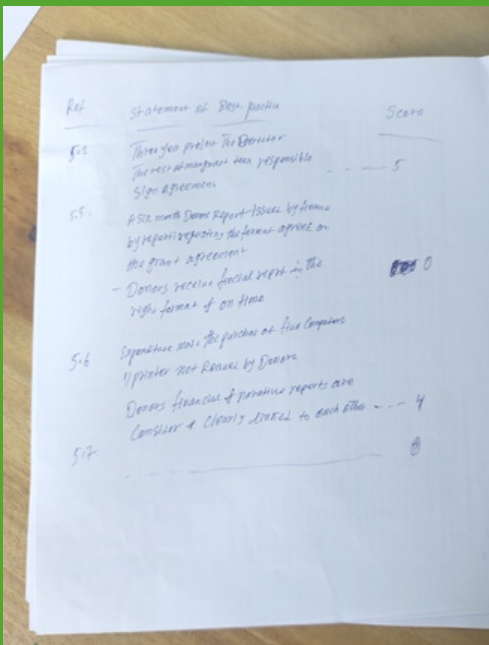 Ref Statement of Best practice Score
5.1 Three year project The Director
The rest of management team responsible
Sign agreement - - - - 5
5.5. A Six month Donors Report Issues by finance
by reporting the format agrees on
the grant agreement
- Donors receive finacial report in the
right format & on time 0
5.6 Expenditure more the purchase of five Computers
1 printer not by Donors
Donors financial & narative reports are
Consister & Clearly linked to each other - - - 4
5.7 0